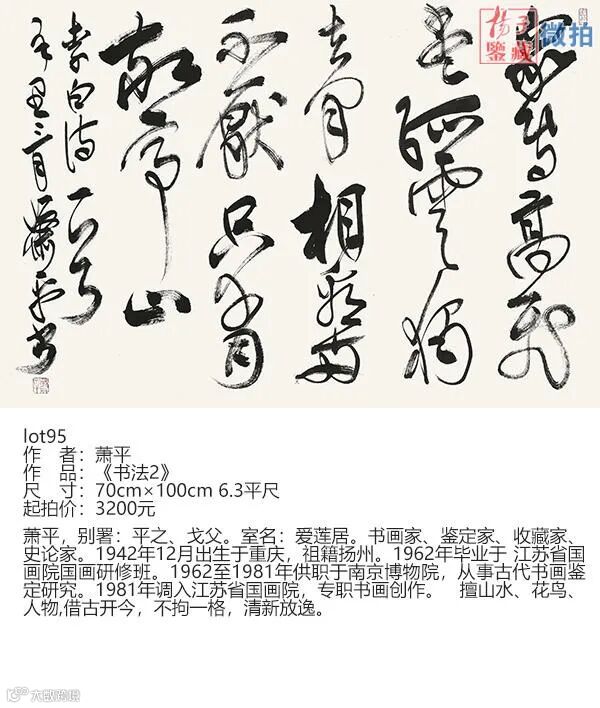 揚子
鑒藏
微拍
眾鳥高飛
盡孤雲獨
去閒相看兩
不厭只有
敬亭山
李白诗一首
辛丑 月蕭平書
lot95
作 者：萧平
作 品：《书法2》
尺 寸：70cm×100cm 6.3平尺
起拍价：3200元
萧平，别署：平之、戈父。室名：爱莲居。书画家、鉴定家、收藏家、
史论家。1942年12月出生于重庆，祖籍扬州。1962年毕业于 江苏省国
画院国画研修班。1962至1981年供职于南京博物院，从事古代书画鉴
定研究。1981年调入江苏省国画院，专职书画创作。 擅山水、花鸟、
人物,借古开今，不拘一格，清新放逸。
大数跨境